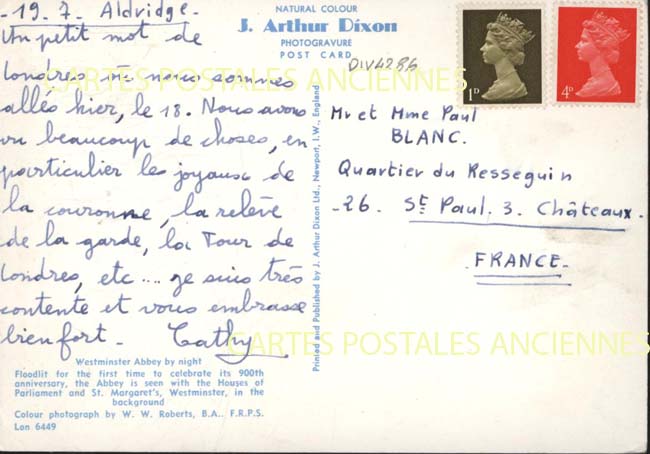 - 19. 7. Aldridge -
Un petit mot de
Londres où nous sommes
allés hier, le 18. Nous avons
vu beaucoup de choses, en
particulier les joyaux de
la couronne, la relève
de la garde, la Tour de
Londres, etc .... je suis très
contente et vous embrasse
bien fort - Cathy
Westminster Abbey by night
Floodlit for the first time to celebrate its 900th
anniversary, the Abbey is seen with the Houses of
Parliament and St. Margaret's, Westminster, in the
background
Colour photograph by W. W. Roberts, B.A., F.R.P.S.
Lon 6449
NATURAL COLOUR
J. Arthur Dixon
PHOTOGRAVURE
POST CARD
Printed and Published by J. Arthur Dixon Ltd., Newport, I.W., England
DIV4286
1D
4D
Mr et Mme Paul
BLANC.
Quartier du Resseguin
-26. St Paul. 3. Châteaux.
. FRANCE -
CARTES POSTALES ANCIENNES
CARTES POSTALES ANCIENNES